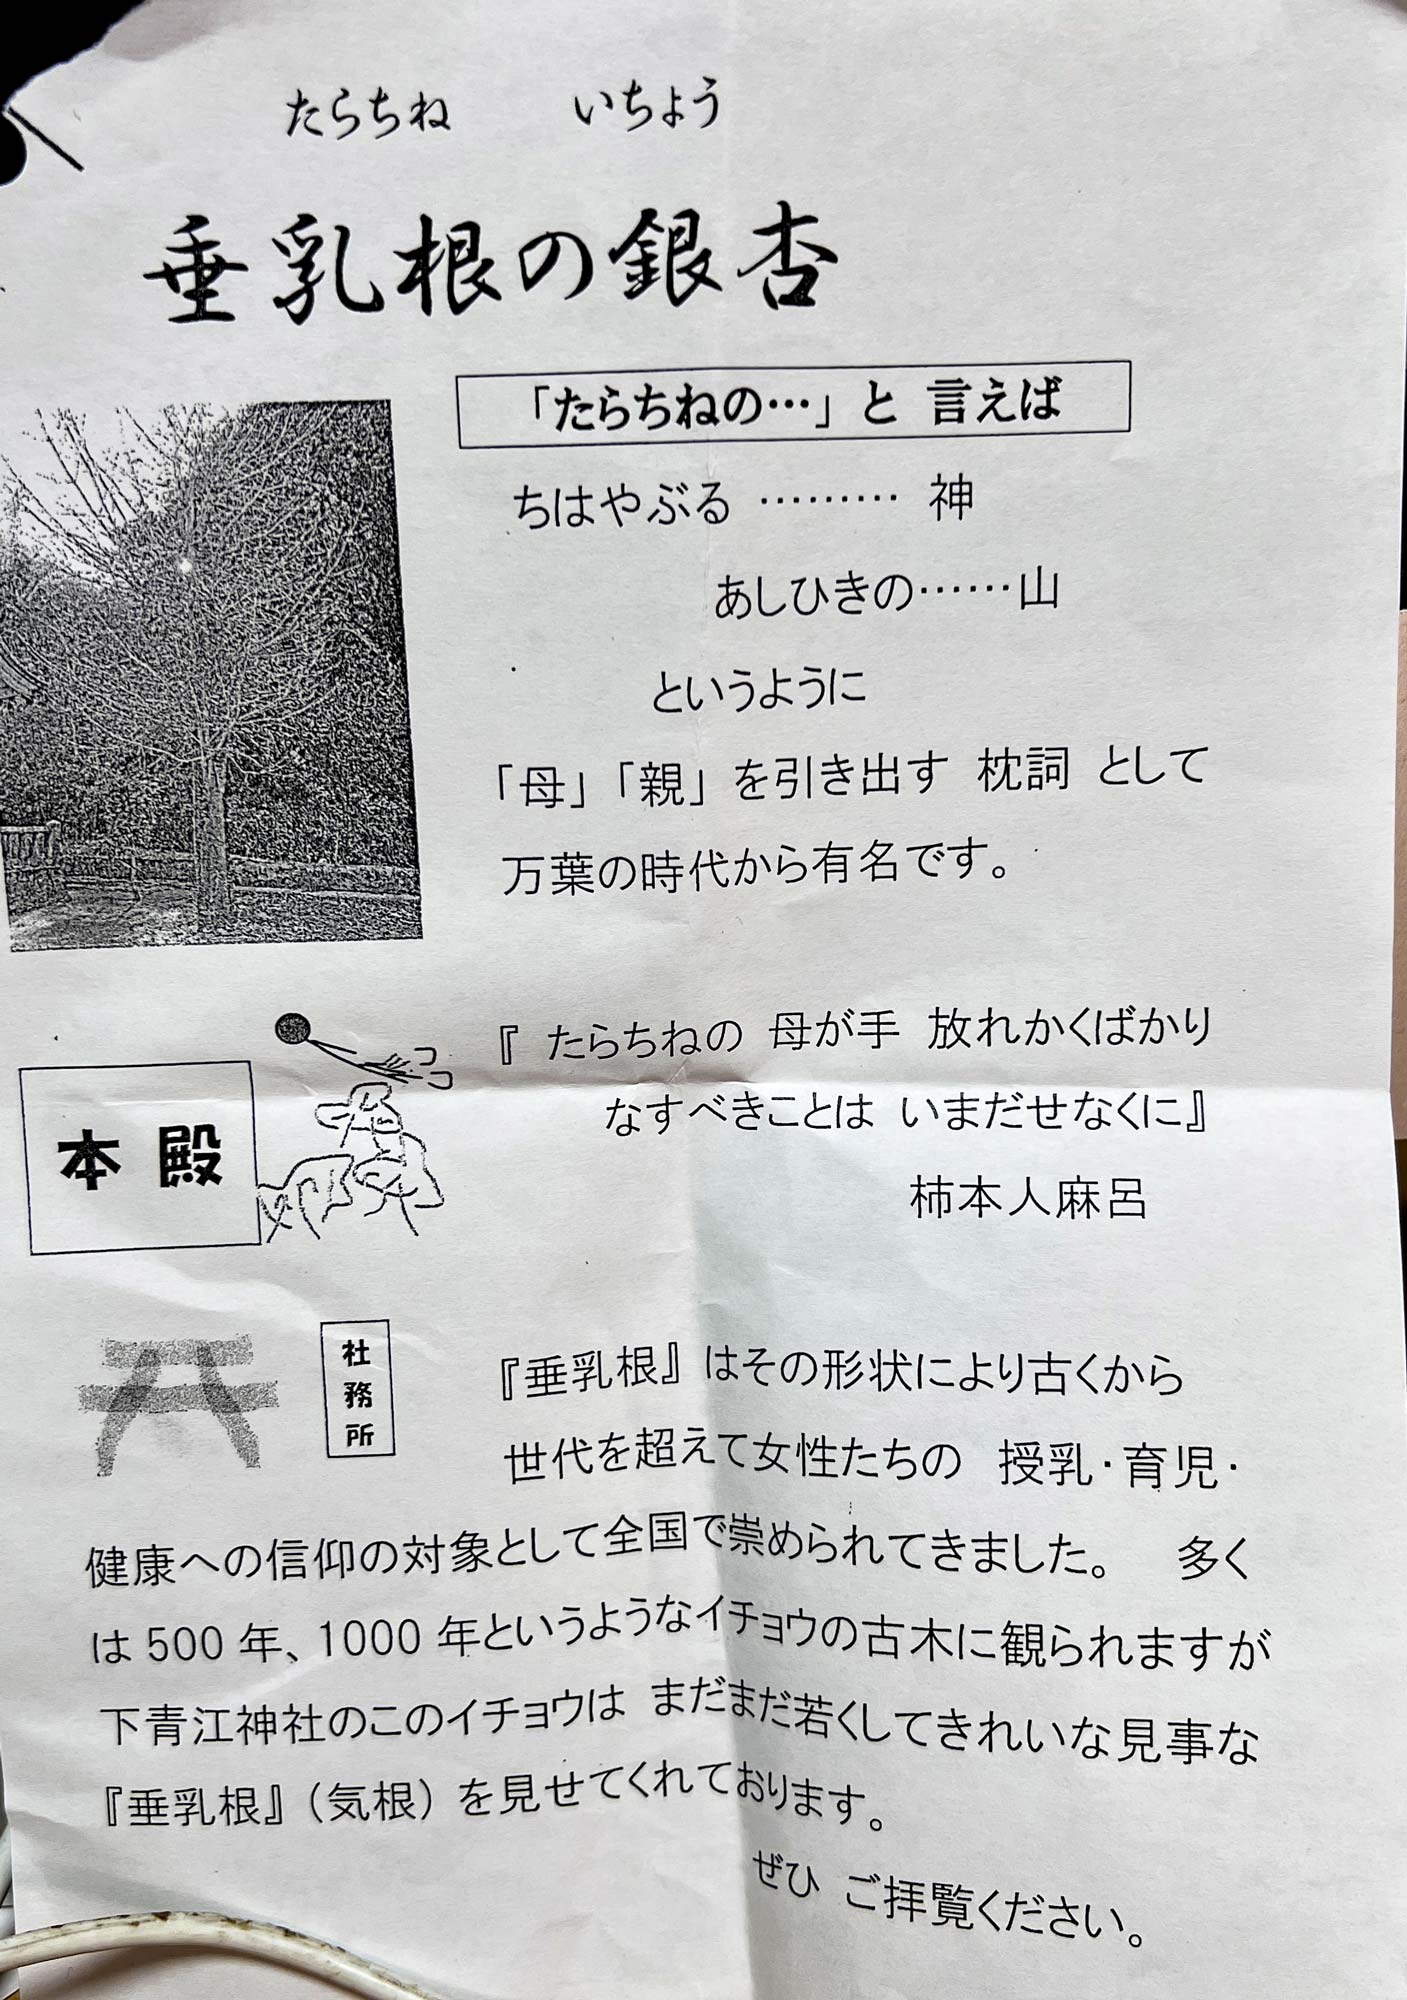 たらちね いちょう
垂乳根の銀杏
「たらちねの…」と 言えば
ちはやぶる ……… 神
あしひきの……山
というように
「母」「親」を引き出す 枕詞 として
万葉の時代から有名です。
『 たらちねの 母が手 放れかくばかり
なすべきことは いまだせなくに』
柿本人麻呂
本殿
社務所
『垂乳根』はその形状により古くから
世代を超えて女性たちの 授乳・育児・
健康への信仰の対象として全国で崇められてきました。 多く
は500年、1000年というようなイチョウの古木に観られますが
下青江神社のこのイチョウは まだまだ若くしてきれいな見事な
『垂乳根』（気根）を見せてくれております。
ぜひ ご拝覧ください。